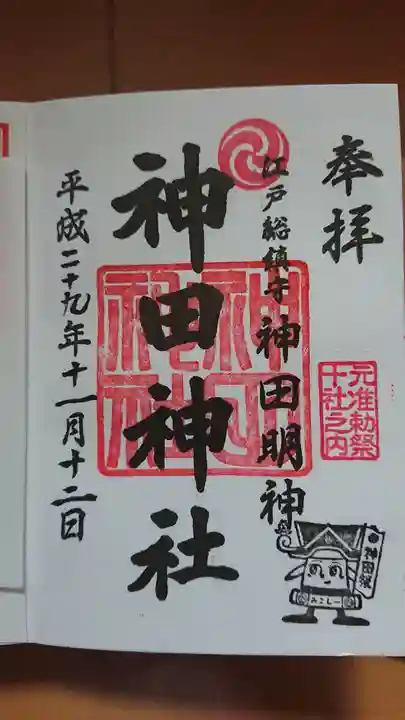 奉拝
元准勅祭
十社之内
神田祭
みこしー
江戸総鎮守 神田明神
神田神社
平成二十九年十一月十二日